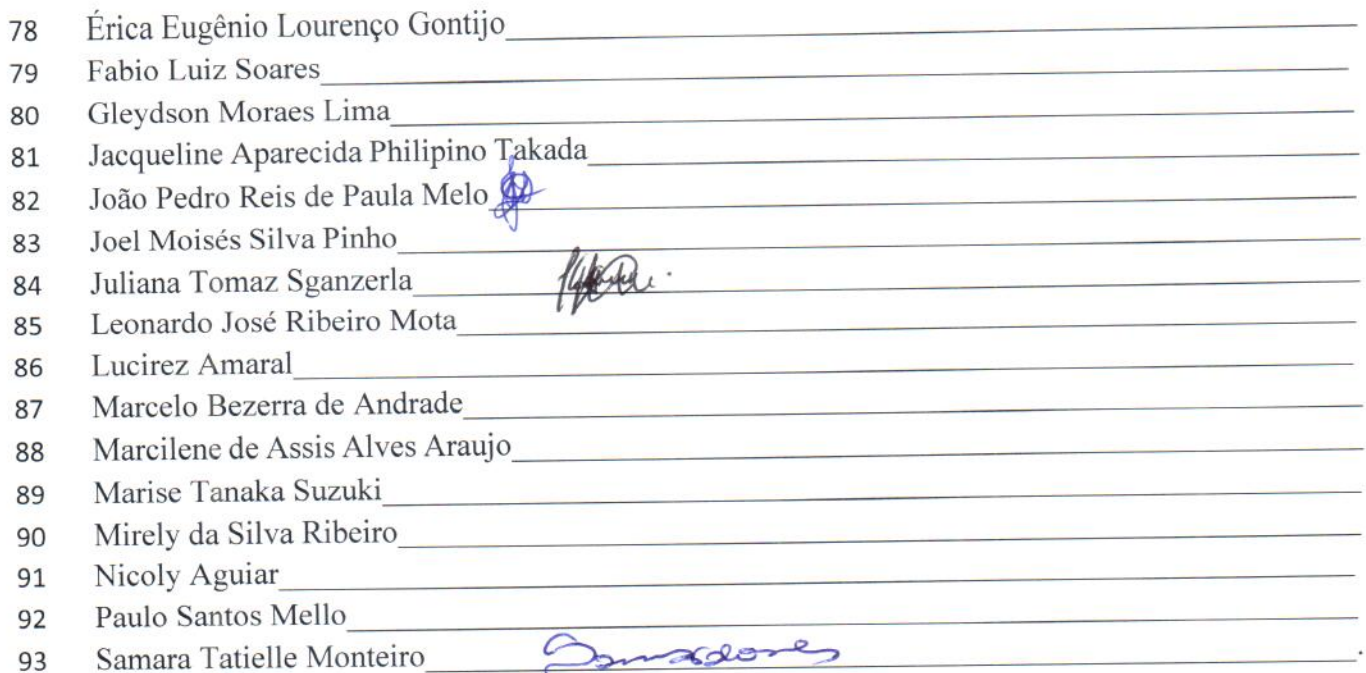 78 Érica Eugênio Lourenço Gontijo
79 Fabio Luiz Soares
80 Gleydson Moraes Lima
81 Jacqueline Aparecida Philipino Takada
82 João Pedro Reis de Paula Melo
83 Joel Moisés Silva Pinho
84 Juliana Tomaz Sganzerla
85 Leonardo José Ribeiro Mota
86 Lucirez Amaral
87 Marcelo Bezerra de Andrade
88 Marcilene de Assis Alves Araujo
89 Marise Tanaka Suzuki
90 Mirely da Silva Ribeiro
91 Nicoly Aguiar
92 Paulo Santos Mello
93 Samara Tatielle Monteiro .